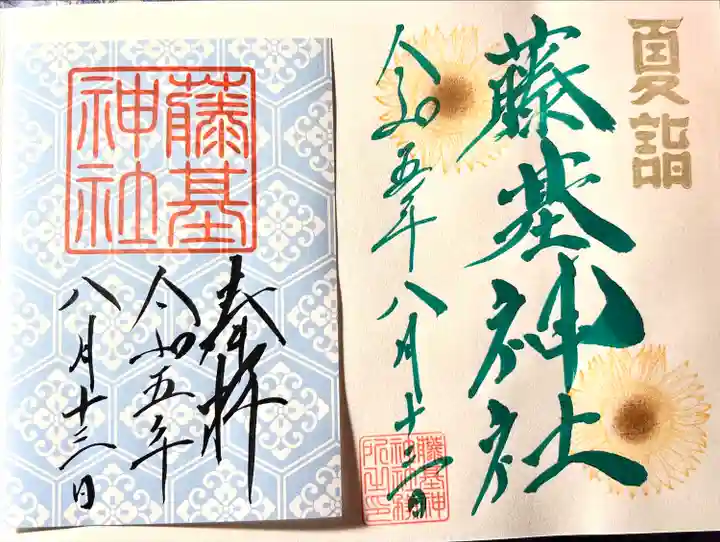 夏詣
藤基神社
令和五年八月十三日
藤基神
社神務
所之印
藤基
神社
奉拝
令和五年
八月十三日